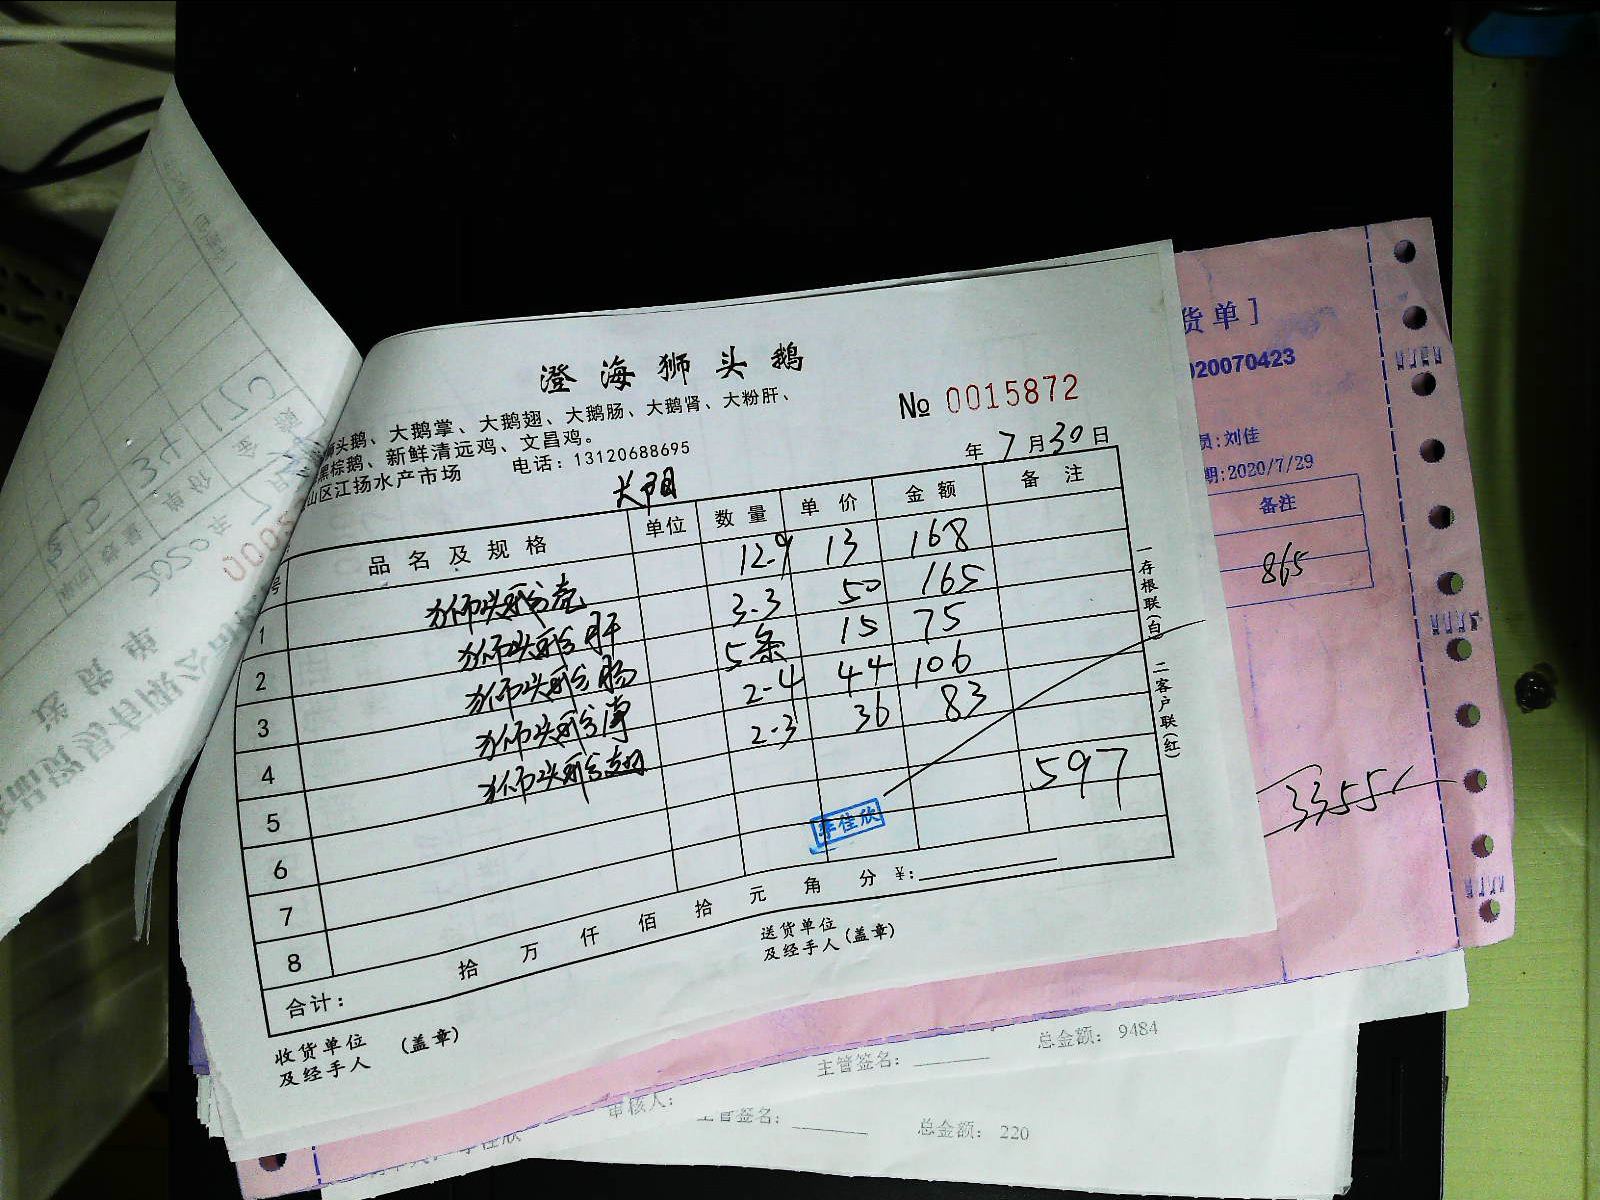 澄海狮头鹅
狮头鹅、大鹅掌、大鹅翅、大鹅肠、大鹅肾、大粉肝、
黑棕鹅、新鲜清远鸡、文昌鸡。
山区江扬水产市场 电话：13120688695
№ 0015872
年 7 月 30 日
号 品名及规格 单位 数量 单价 金额 备注
1 狮头鹅壳 12.9 13 168
2 狮头鹅肝 3.3 50 165
3 狮头鹅肠 5条 15 75
4 狮头鹅 2.4 44 106
5 狮头鹅翅 2.3 36 83
6
7 597
8
合计： 拾 万 仟 佰 拾 元 角 分 ¥：
李佳欣
收货单位 (盖章)
及经手人
送货单位
及经手人 (盖章)
一存根联(白) 二客户联(红)
货单]
020070423
员:刘佳
期:2020/7/29
备注
865
3355
主管签名： 总金额： 9484
审核人： 主管签名： 总金额： 220